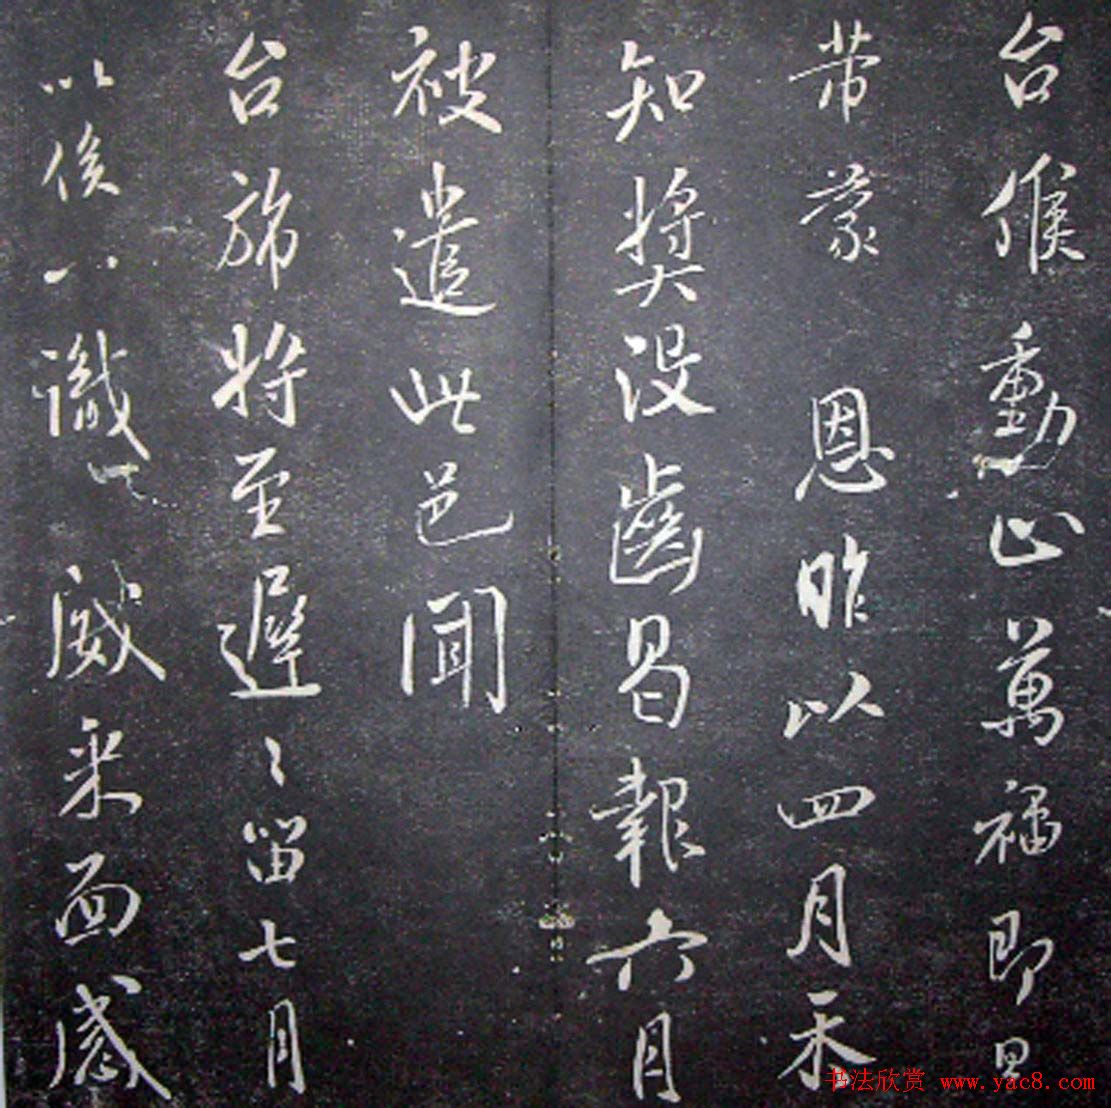 台候動止萬福即日
芾蒙 恩昨以四月禾
知獎没齒曷報六月
被遣此邑聞
台旆將至遲〻留七月
以俟一識
威采面感
书法欣赏 www.yac8.com